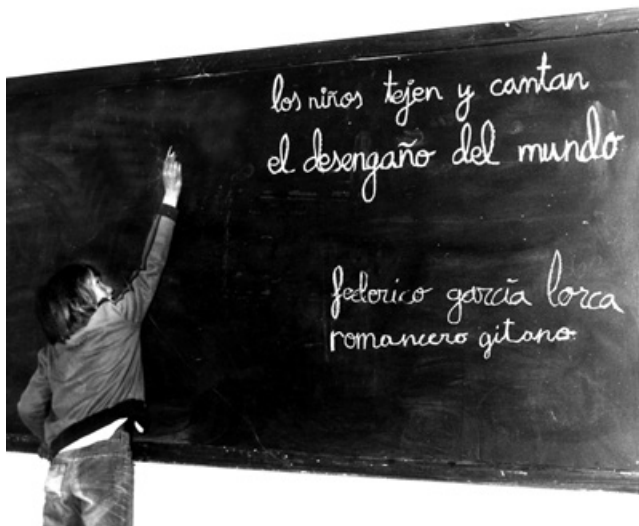 los niños tejen y cantan
el desengaño del mundo
federico garcía lorca
romancero gitano